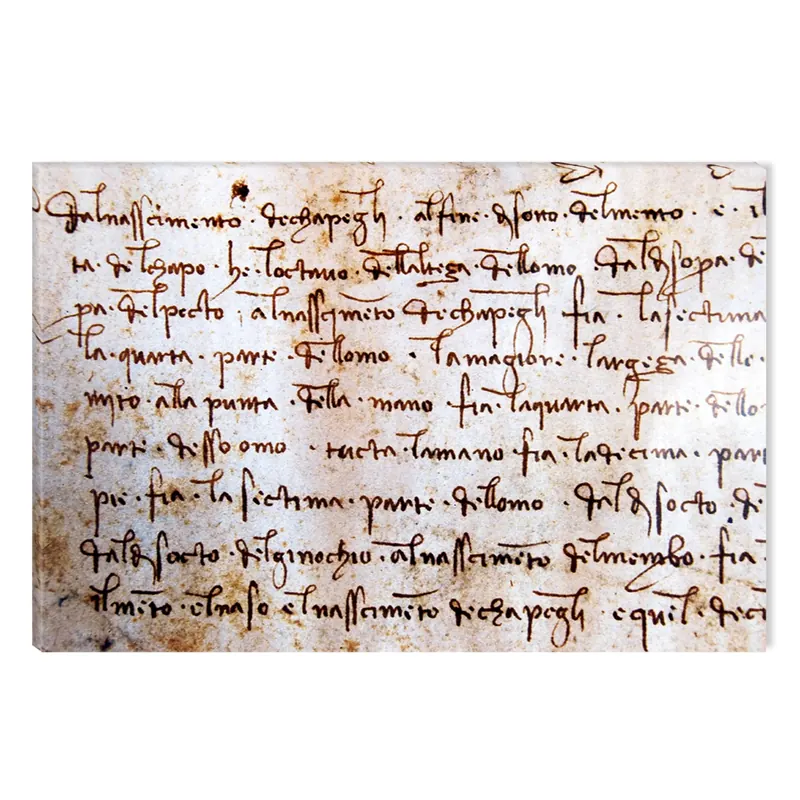 dalnasscimento · dechapegli · alfine · dsotto · delmento · e · il
ta · delchapo · he · loctavo · dellaltega · dellomo · dald sopa · de
pa · delpecto · alnasscimēto dechapegli fia · lasectima
la · quarta · parte · dellomo · lamagiore · largega · delle ·
mito · alla punta · della · mano · fia · laquarta · parte · dello
parte · desso omo · tucta · lamano · fia · ladecima · part
pie · fia · la sectima · parte · dellomo · dald socto · de
dald socto · delginochio · alnasscimēto delmembo · fia ·
ilmēto · elnaso · elnasscimēto dechapegli · equel · deci